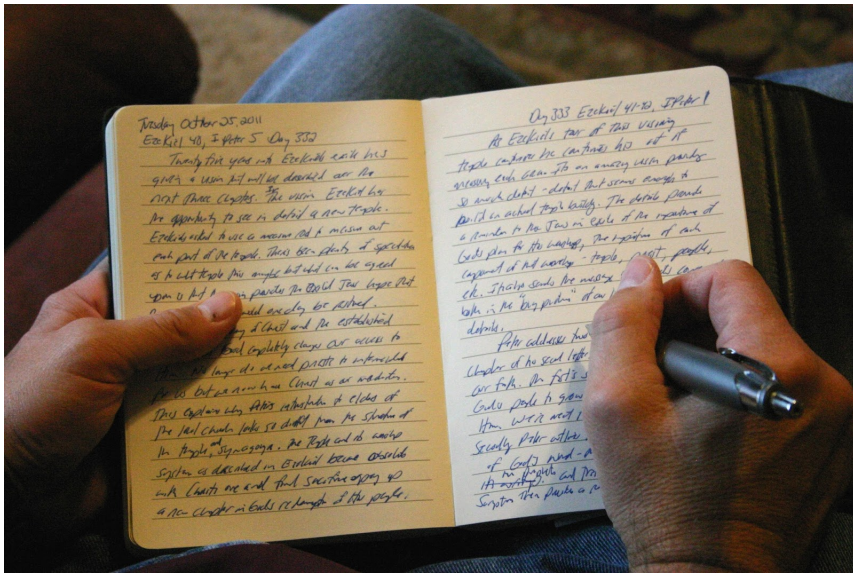 Tuesday October 25, 2011
Ezekiel 40, I Peter 5 Day 332
Twenty five years into Ezekiel's exile he's
given a vision that will be described over the
next three chapters. In the vision Ezekiel has
the opportunity to see in detail a new temple.
Ezekiel's asked to use a measure rod to measure out
each part of the temple. There's been plenty of speculation
as to what temple this maybe but what can be agreed
upon is that the vision provides the exiled Jews hope that
would one day be restored.
of Christ and the established
completely changes our access to
Him. No longer do we need priests to
for us but we now have Christ as our mediator.
This explains why Peter's instruction to elders of
the local church looks so different from the structure of
the temple, and synagogue. The Temple and its worship
system as described in Ezekiel became obsolete
with Christ's one and final sacrifice opening up
a new chapter in God's redemption of His people.
Day 333 Ezekiel 41-42, II Peter 1
As Ezekiel's tour of this visionary
temple continues he continues his out of
measuring each
so much detail - detail that seems enough to
build an actual temple building. The details provide
a reminder to the Jews in exile of the importance of
God's plan for His worship, the importance of each
component of that worship - temple, priest, people,
etc. It also sends the message
both in the "big picture" of our
details.
Peter addresses two
chapter of his second letter
our faith. The first is
God's people to grow
Him. We're next
Secondly Peter outlines
of God's word -
the prophets
and
Scripture then provides a